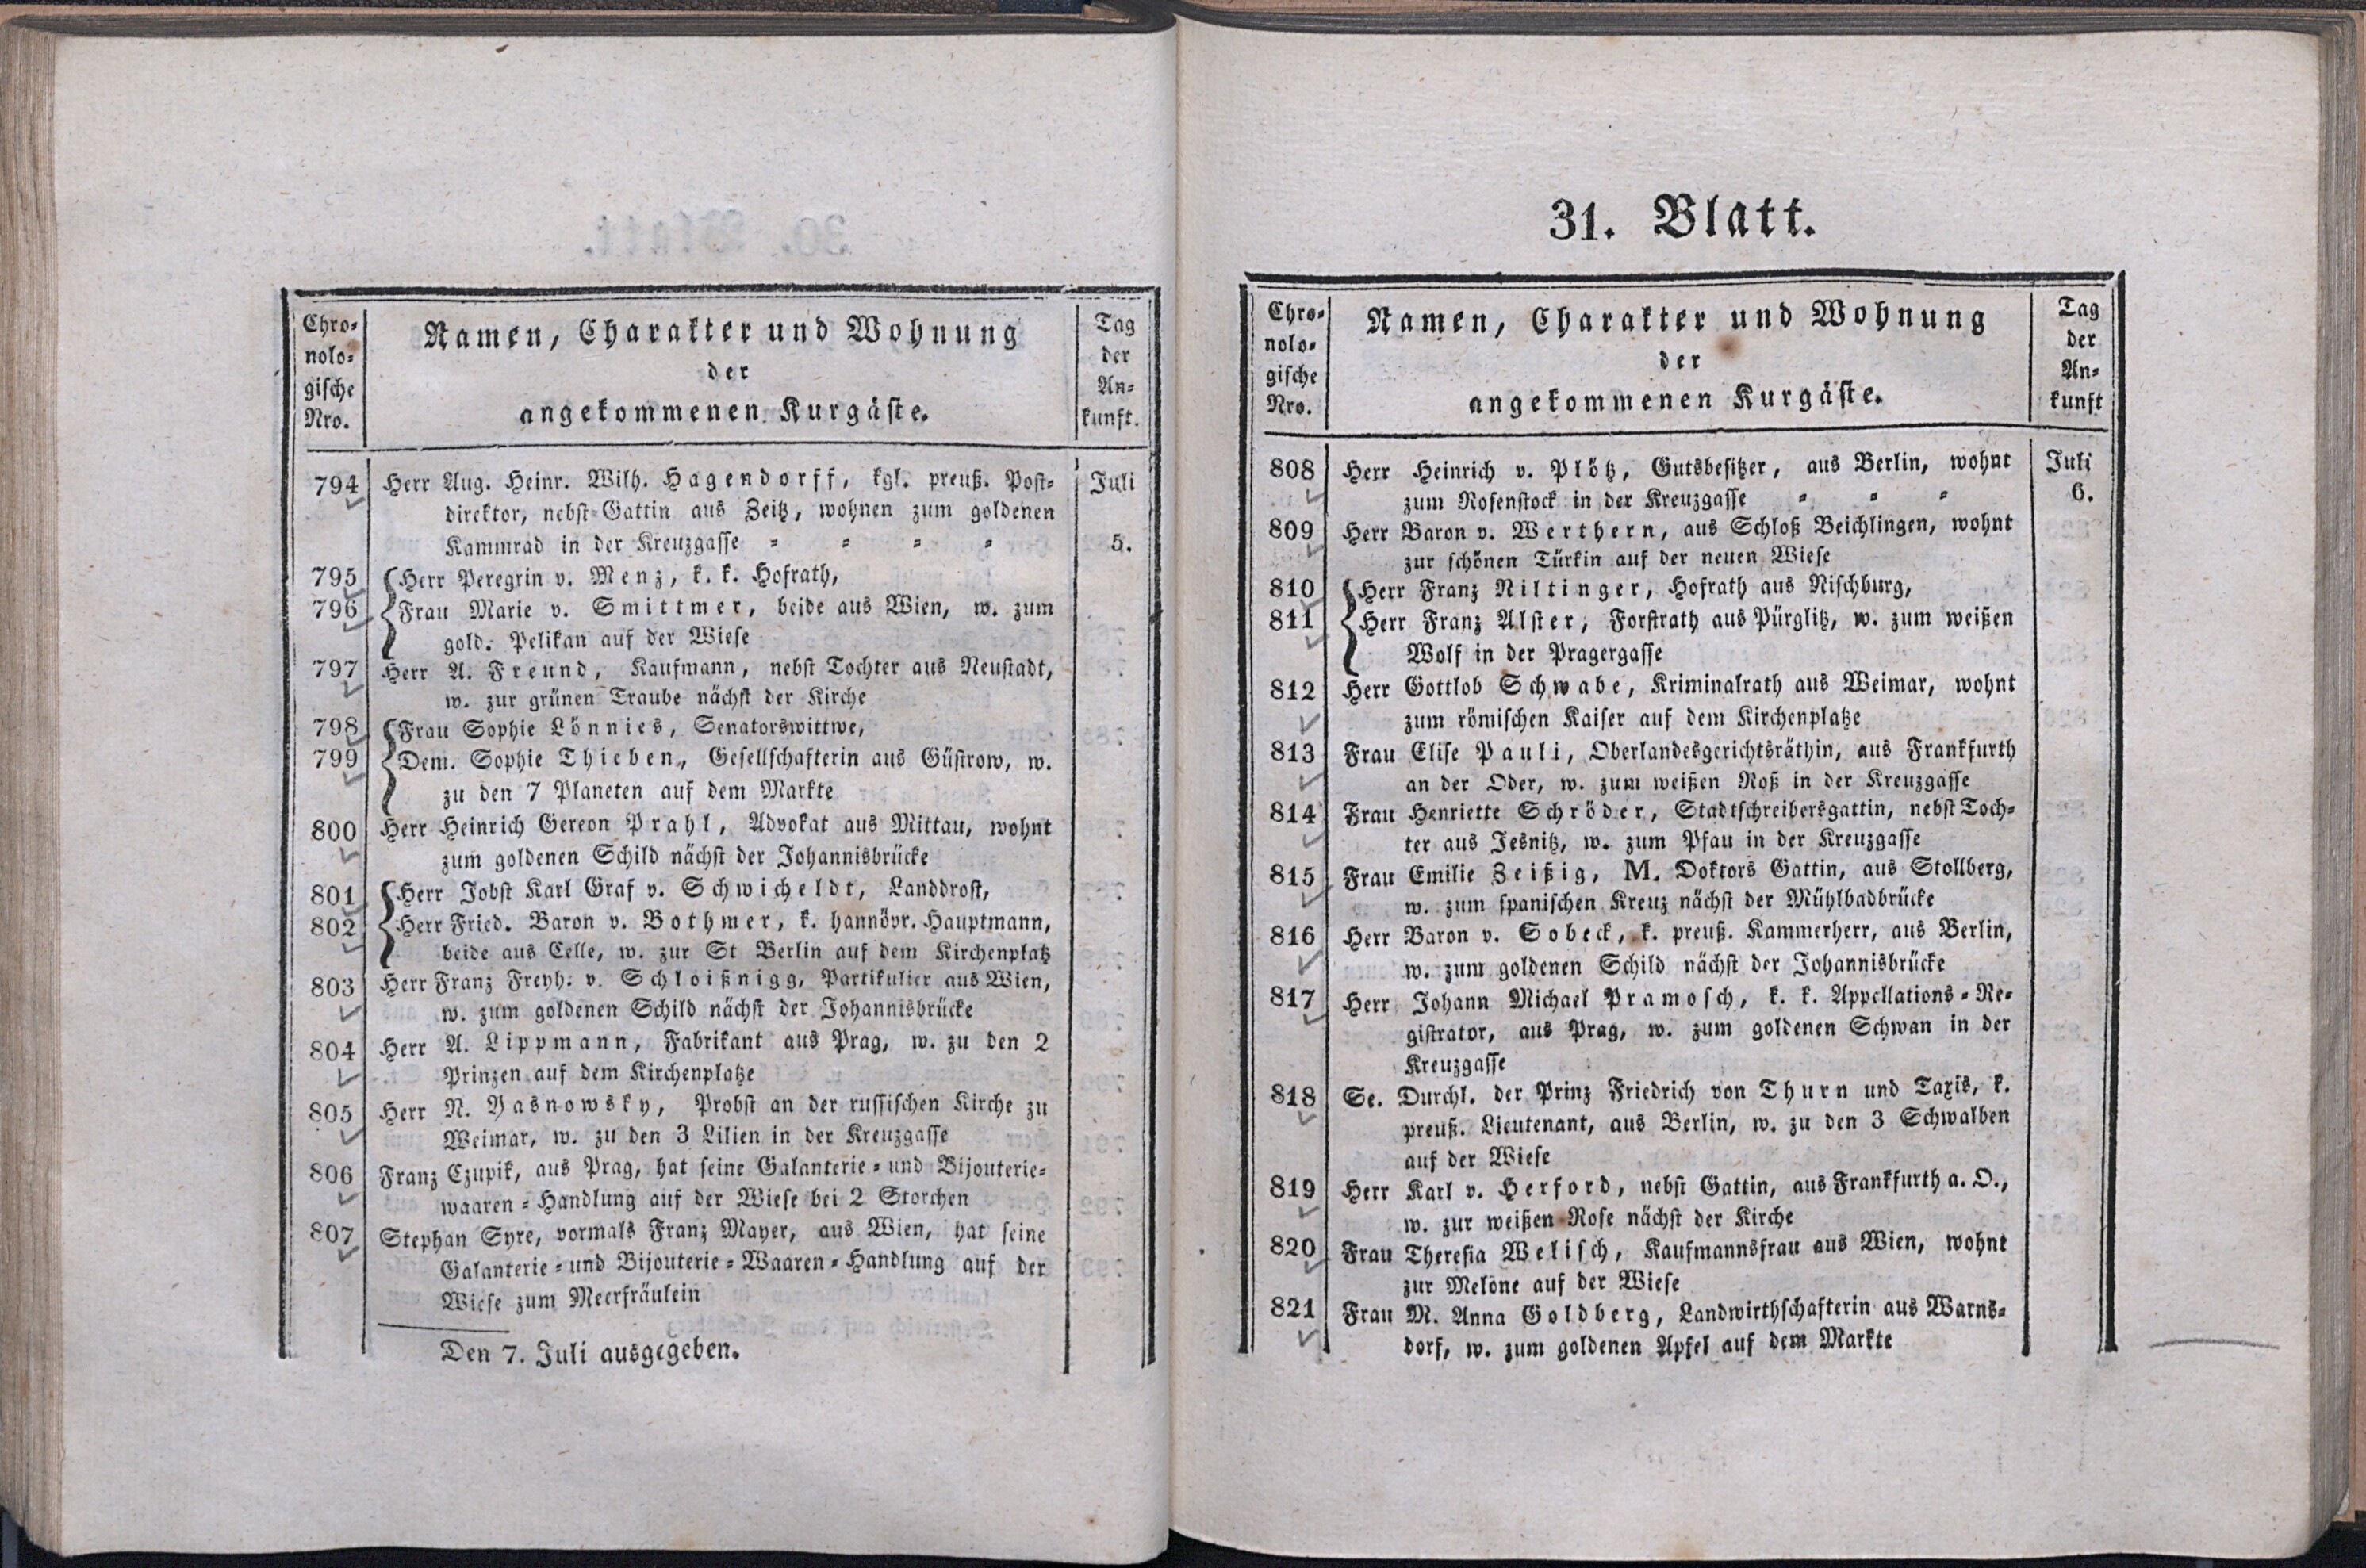 Chro-
nolo-
gische
Nro.
Namen, Charakter und Wohnung
der
angekommenen Kurgäste.
Tag
der
An-
kunft.
794 Herr Aug. Heinr. Wilh. Hagendorff, kgl. preuß. Post- Juli
direktor, nebst Gattin aus Zeitz, wohnen zum goldenen
Kammrad in der Kreuzgasse = = = = 5.
795 Herr Peregrin v. Menz, k. k. Hofrath,
796 Frau Marie v. Smittmer, beide aus Wien, w. zum
gold. Pelikan auf der Wiese
797 Herr A. Freund, Kaufmann, nebst Tochter aus Neustadt,
w. zur grünen Traube nächst der Kirche
798 Frau Sophie Lönnies, Senatorswittwe,
799 Dem. Sophie Thieben, Gesellschafterin aus Güstrow, w.
zu den 7 Planeten auf dem Markte
800 Herr Heinrich Gereon Prahl, Advokat aus Mittau, wohnt
zum goldenen Schild nächst der Johannisbrücke
801 Herr Jobst Karl Graf v. Schwicheldt, Landdrost,
802 Herr Fried. Baron v. Bothmer, k. hannövr. Hauptmann,
beide aus Celle, w. zur St Berlin auf dem Kirchenplatz
803 Herr Franz Freyh. v. Schloißnigg, Partikulier aus Wien,
w. zum goldenen Schild nächst der Johannisbrücke
804 Herr A. Lippmann, Fabrikant aus Prag, w. zu den 2
Prinzen auf dem Kirchenplatze
805 Herr N. Yasnowsky, Probst an der russischen Kirche zu
Weimar, w. zu den 3 Lilien in der Kreuzgasse
806 Franz Czupik, aus Prag, hat seine Galanterie- und Bijouterie-
waaren-Handlung auf der Wiese bei 2 Storchen
807 Stephan Syre, vormals Franz Mayer, aus Wien, hat seine
Galanterie- und Bijouterie-Waaren-Handlung auf der
Wiese zum Meerfräulein
Den 7. Juli ausgegeben.
31. Blatt.
Chro-
nolo-
gische
Nro.
Namen, Charakter und Wohnung
der
angekommenen Kurgäste.
Tag
der
An-
kunft
808 Herr Heinrich v. Plötz, Gutsbesitzer, aus Berlin, wohnt Juli
zum Rosenstock in der Kreuzgasse = = = 6.
809 Herr Baron v. Werthern, aus Schloß Beichlingen, wohnt
zur schönen Türkin auf der neuen Wiese
810 Herr Franz Niltinger, Hofrath aus Nischburg,
811 Herr Franz Alster, Forstrath aus Pürglitz, w. zum weißen
Wolf in der Pragergasse
812 Herr Gottlob Schwabe, Kriminalrath aus Weimar, wohnt
zum römischen Kaiser auf dem Kirchenplatze
813 Frau Elise Pauli, Oberlandesgerichtsräthin, aus Frankfurth
an der Oder, w. zum weißen Roß in der Kreuzgasse
814 Frau Henriette Schröder, Stadtschreibersgattin, nebst Toch-
ter aus Jesnitz, w. zum Pfau in der Kreuzgasse
815 Frau Emilie Zeißig, M. Doktors Gattin, aus Stollberg,
w. zum spanischen Kreuz nächst der Mühlbadbrücke
816 Herr Baron v. Sobeck, k. preuß. Kammerherr, aus Berlin,
w. zum goldenen Schild nächst der Johannisbrücke
817 Herr Johann Michael Pramosch, k. k. Appellations-Re-
gistrator, aus Prag, w. zum goldenen Schwan in der
Kreuzgasse
818 Se. Durchl. der Prinz Friedrich von Thurn und Taxis, k.
preuß. Lieutenant, aus Berlin, w. zu den 3 Schwalben
auf der Wiese
819 Herr Karl v. Herford, nebst Gattin, aus Frankfurth a. O.,
w. zur weißen Rose nächst der Kirche
820 Frau Theresia Welisch, Kaufmannsfrau aus Wien, wohnt
zur Melone auf der Wiese
821 Frau M. Anna Goldberg, Landwirthschafterin aus Warns-
dorf, w. zum goldenen Apfel auf dem Markte